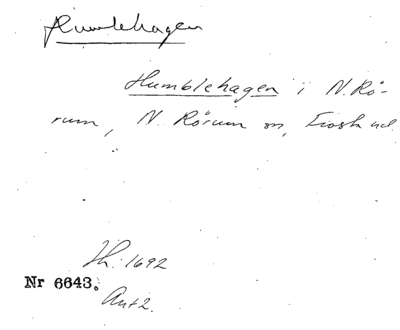 Humblehagen
Humblehagen i N. Rö-
rum, N. Rörum sn, Frosta hd.
Jb. 1692
Nr 6643.
Ant 2.